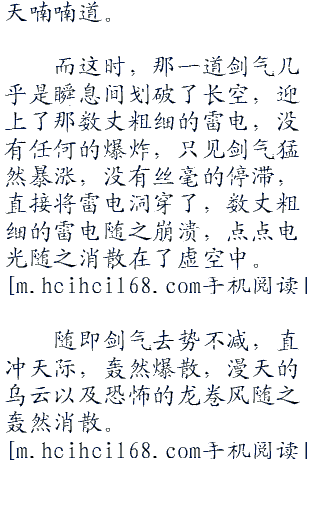 天喃喃道。
而这时，那一道剑气几
乎是瞬息间划破了长空，迎
上了那数丈粗细的雷电，没
有任何的爆炸，只见剑气猛
然暴涨，没有丝毫的停滞，
直接将雷电洞穿了，数丈粗
细的雷电随之崩溃，点点电
光随之消散在了虚空中。
[m.hcihci168.com手机阅读|
随即剑气去势不减，直
冲天际，轰然爆散，漫天的
乌云以及恐怖的龙卷风随之
轰然消散。
[m.hcihci168.com手机阅读|